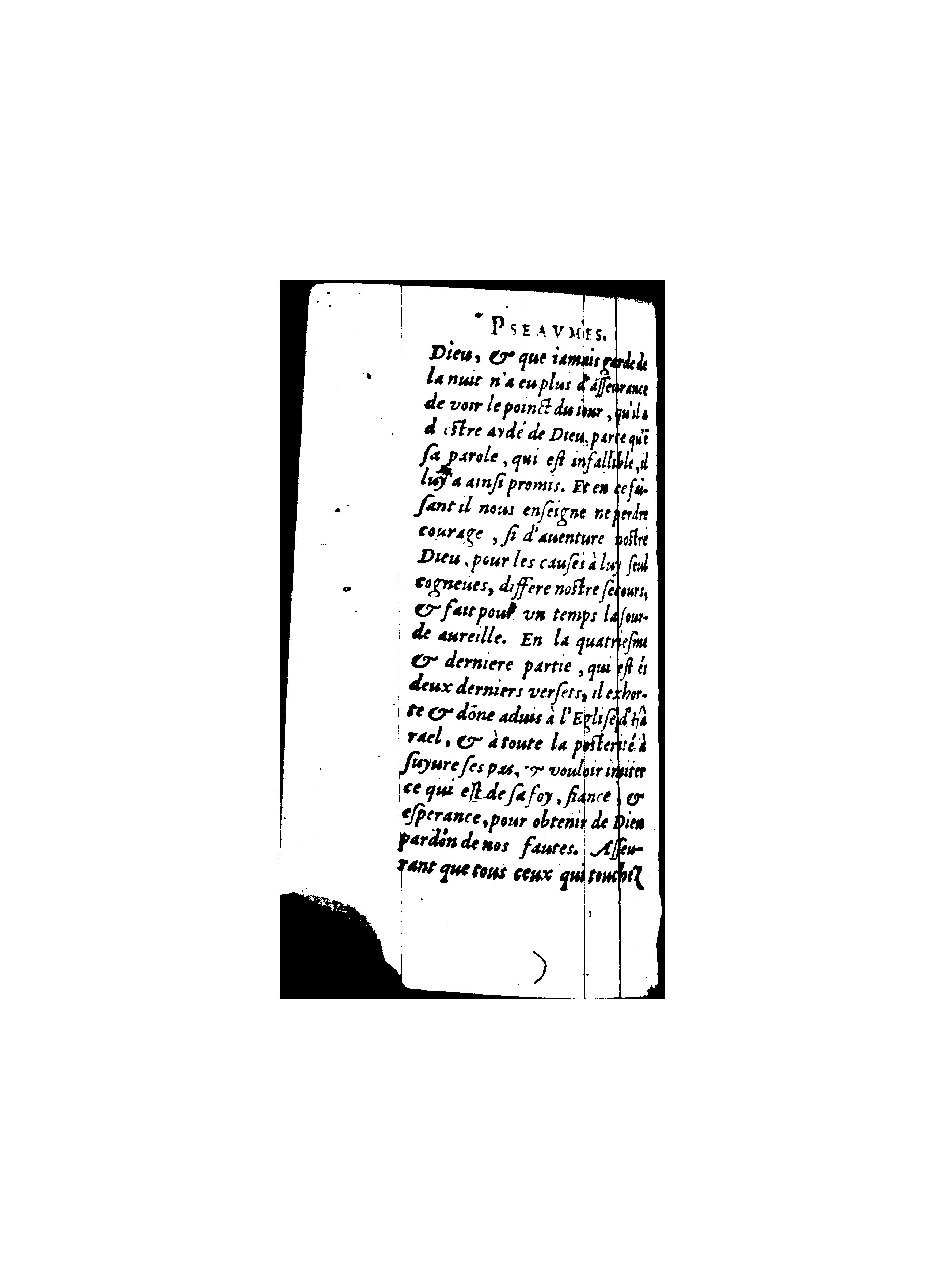 PSEAVMES.
Dieu, & que iamais garde de
la nuit n'a eu plus d'asseurance
de voir le poinct du iour, qu'il a
d'estre aydé de Dieu, parce qu'ē
sa parole, qui est infallible, il
luy a ainsi promis. Et en ce fai-
sant il nous enseigne ne perdre
courage, si d'auenture nostre
Dieu, pour les causes à luy seul
cogneues, differe nostre secours,
& fait pour vn temps la sour-
de aureille. En la quatriesme
& derniere partie, qui est és
deux derniers versets, il exhor-
te & dōne aduis à l'Eglise d'Is-
rael, & à toute la posterité à
suyure ses pas, & vouloir imiter
ce qui est de sa foy, fiance, &
esperance, pour obtenir de Dieu
pardon de nos fautes. Asseu-
rant que tous ceux qui